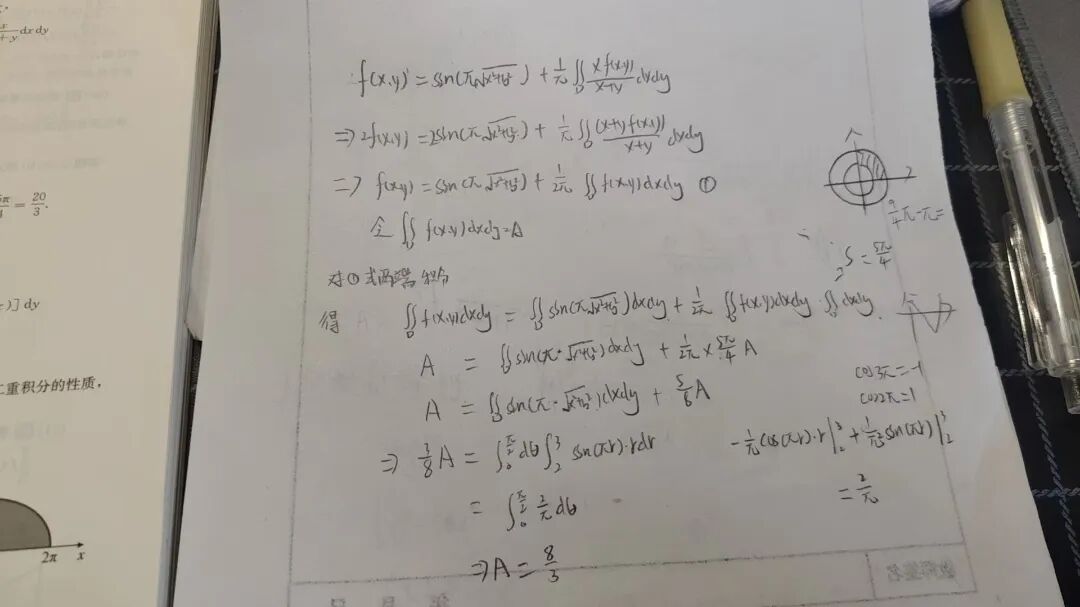 x/+y dxdy
5π/4 = 20/3.
)] dy
二重积分的性质，
2π x
f(x,y) = sin(π√x²+y²) + 1/π ∬_D xf(x,y)/x+y dxdy
⇒ 2f(x,y) = 2sin(π√x²+y²) + 1/π ∬_D (x+y)f(x,y)/x+y dxdy
⇒ f(x,y) = sin(π√x²+y²) + 1/2π ∬_D f(x,y)dxdy ①
令 ∬_D f(x,y)dxdy = A
对①式两端积分
得 ∬_D f(x,y)dxdy = ∬_D sin(π√x²+y²)dxdy + 1/2π ∬_D f(x,y)dxdy · ∬_D dxdy.
A = ∬_D sin(π·√x²+y²)dxdy + 1/2π × 5π/4 A
A = ∬_D sin(π·√x²+y²)dxdy + 5/8 A
⇒ 3/8 A = ∫_0^{π/2} dθ ∫_2^3 sin(πr)·r dr
= ∫_0^{π/2} 2/π dθ
⇒ A = 8/3
9/4 π - π =
S = 5π/4
2
cos3π = -1
cos2π = 1
-1/π cos(πr)·r |_2^3 + 1/π² sin(πr) |_2^3
= 2/π